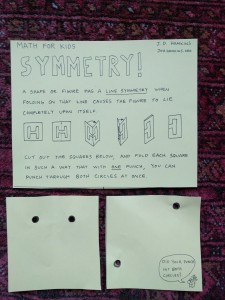 MATH FOR KIDS
J.D. HAMKINS
JDH.HAMKINS.ORG
SYMMETRY!
A SHAPE OR FIGURE HAS A LINE SYMMETRY WHEN
FOLDING ON THAT LINE CAUSES THE FIGURE TO LIE
COMPLETELY UPON ITSELF.
CUT OUT THE SQUARES BELOW, AND FOLD EACH SQUARE
IN SUCH A WAY THAT WITH ONE PUNCH, YOU CAN
PUNCH THROUGH BOTH CIRCLES AT ONCE.
DID YOUR PUNCH
HIT BOTH
CIRCLES?